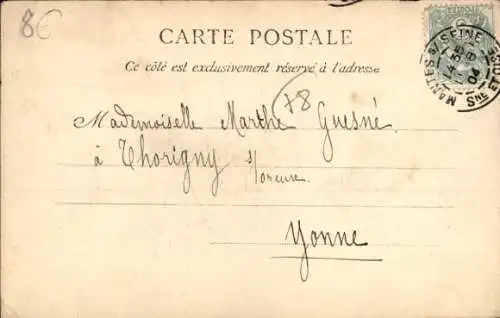 8€
CARTE POSTALE
Ce côté est exclusivement réservé à l'adresse
MANTES S/SEINE
04
78
Mademoiselle Marthe Guesné
à Thorigny s/oreuse
Yonne